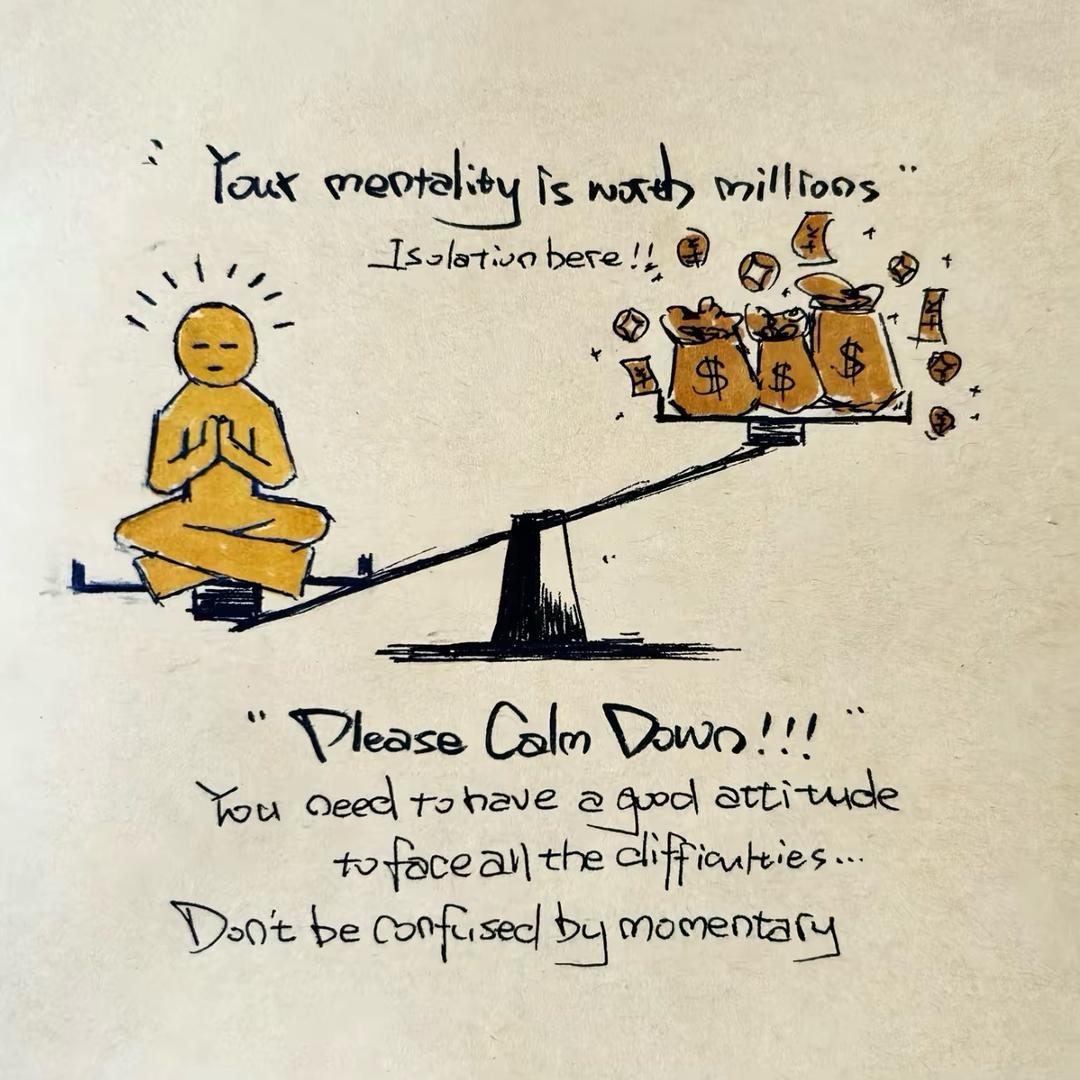 "Your mentality is worth millions"
Isolation here!!
$ $ $
"Please Calm Down!!!"
You need to have a good attitude
to face all the difficulties...
Don't be confused by momentary